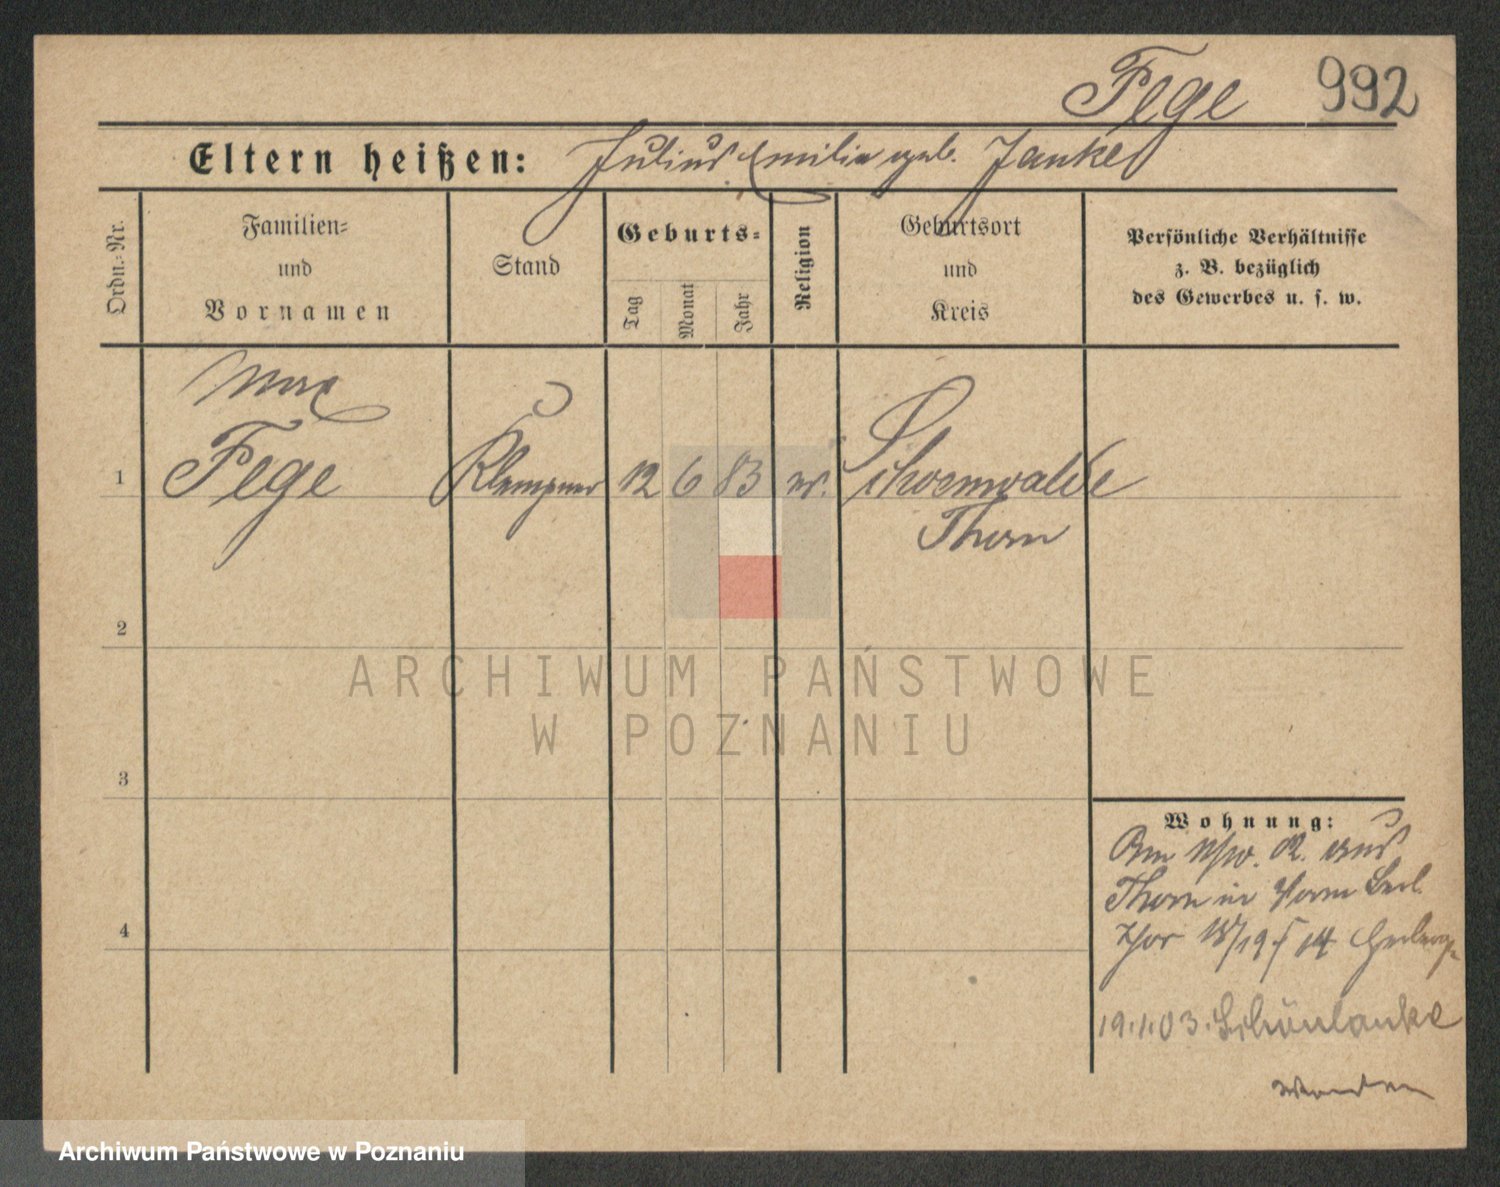 Fege 992
Eltern heißen: Julius Emilie geb. Janke
Ordn.-Nr.
Familien-
und
Vornamen
Stand
Geburts-
Tag
Monat
Jahr
Religion
Geburtsort
und
Kreis
Persönliche Verhältnisse
z. B. bezüglich
des Gewerbes u. s. w.
Max
1 Fege Klempner 12 6 83 ev. Schoenwalde
Thorn
2
3
4
Wohnung:
Am 11/10. 02. aus
Thorn in
Thor 18/19
19.1.03. Schönlanke
ARCHIWUM PAŃSTWOWE
W POZNANIU
Archiwum Państwowe w Poznaniu